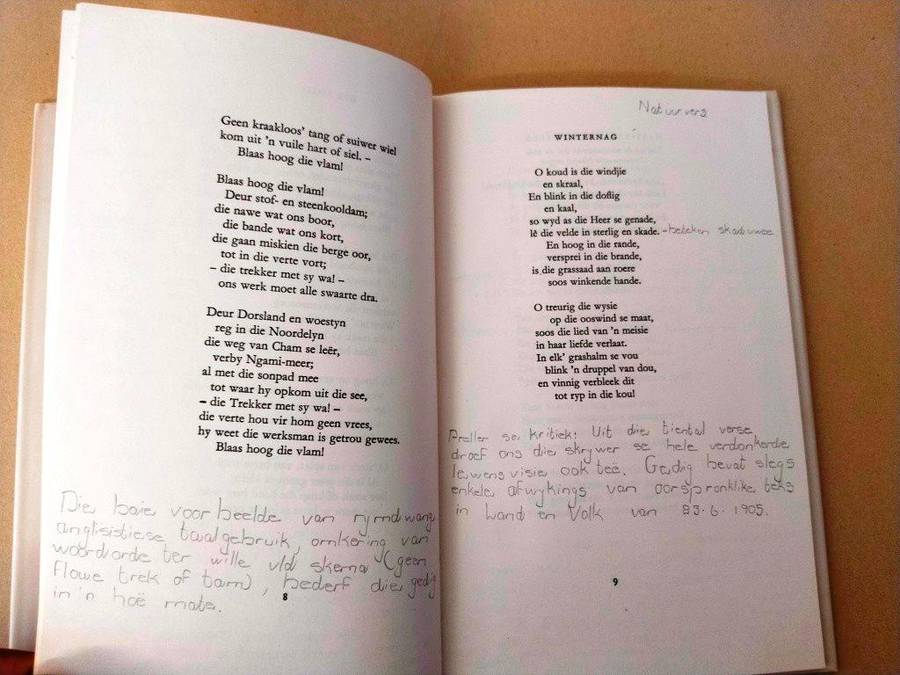 Geen kraakloos' tang of suiwer wiel
kom uit 'n vuile hart of siel. –
Blaas hoog die vlam!
Blaas hoog die vlam!
Deur stof- en steenkooldam;
die nawe wat ons boor,
die bande wat ons kort,
die gaan miskien die berge oor,
tot in die verte vort;
– die trekker met sy wa! –
ons werk moet alle swaarte dra.
Deur Dorsland en woestyn
reg in die Noordelyn
die weg van Cham se leër,
verby Ngami-meer;
al met die sonpad mee
tot waar hy opkom uit die see,
– die Trekker met sy wa! –
die verte hou vir hom geen vrees,
hy weet die werksman is getrou gewees.
Blaas hoog die vlam!
Die baie voorbeelde van rymdwang
anglisistiese taalgebruik, omkering van
woordorde ter wille v/d skema (geen
flowe trek of tam), bederf die gedig
in 'n hoë mate.
8
Natuurvers
WINTERNAG
O koud is die windjie
en skraal,
En blink in die doflig
en kaal,
so wyd as die Heer se genade,
lê die velde in sterlig en skade. – beteken skaduwee
En hoog in die rande,
versprei in die brande,
is die grassaad aan roere
soos winkende hande.
O treurig die wysie
op die ooswind se maat,
soos die lied van 'n meisie
in haar liefde verlaat.
In elk' grashalm se vou
blink 'n druppel van dou,
en vinnig verbleek dit
tot ryp in die kou!
Preller se kritiek: Uit die tiental verse
droef ons die skrywer se hele verdonkerde
lewensvisie ook teë. Gedig bevat slegs
enkele afwykings van oorspronklike teks
in Land en Volk van 23.6.1905.
9